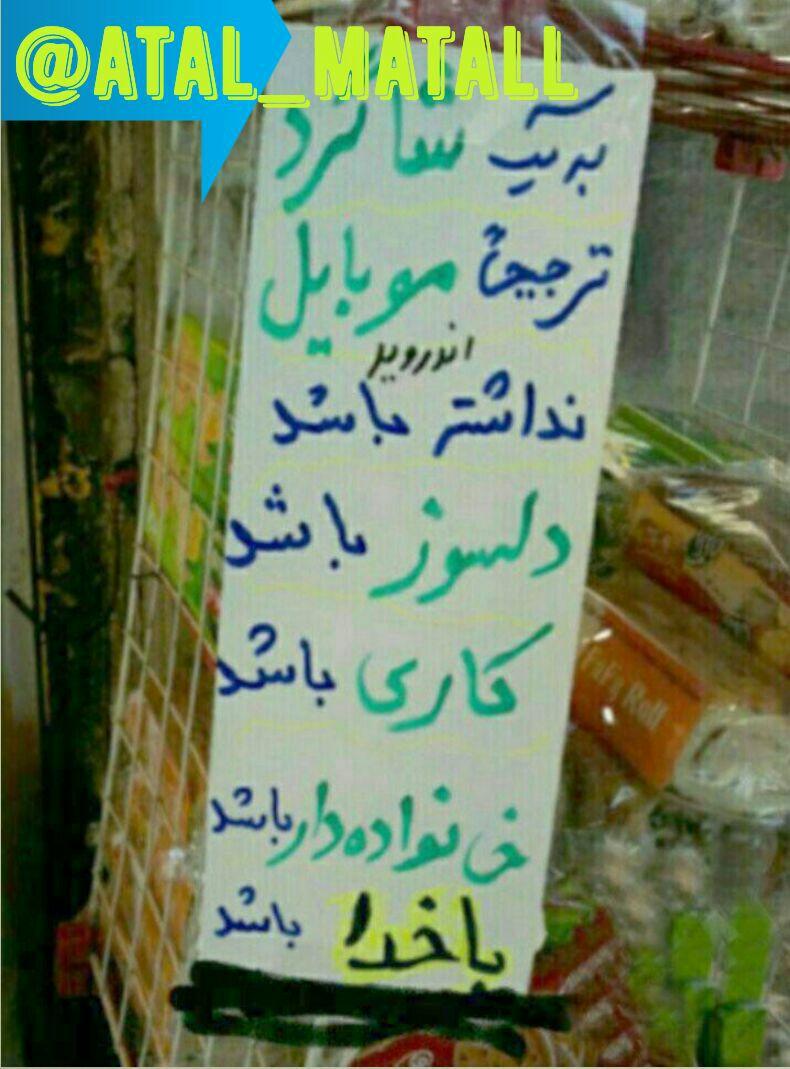 @ATAL_MATALL
به یک شاگرد
ترجیحاً موبایل
اندروید
نداشته باشد
دلسوز باشد
کاری باشد
خانواده دار باشد
باخدا باشد
Roll